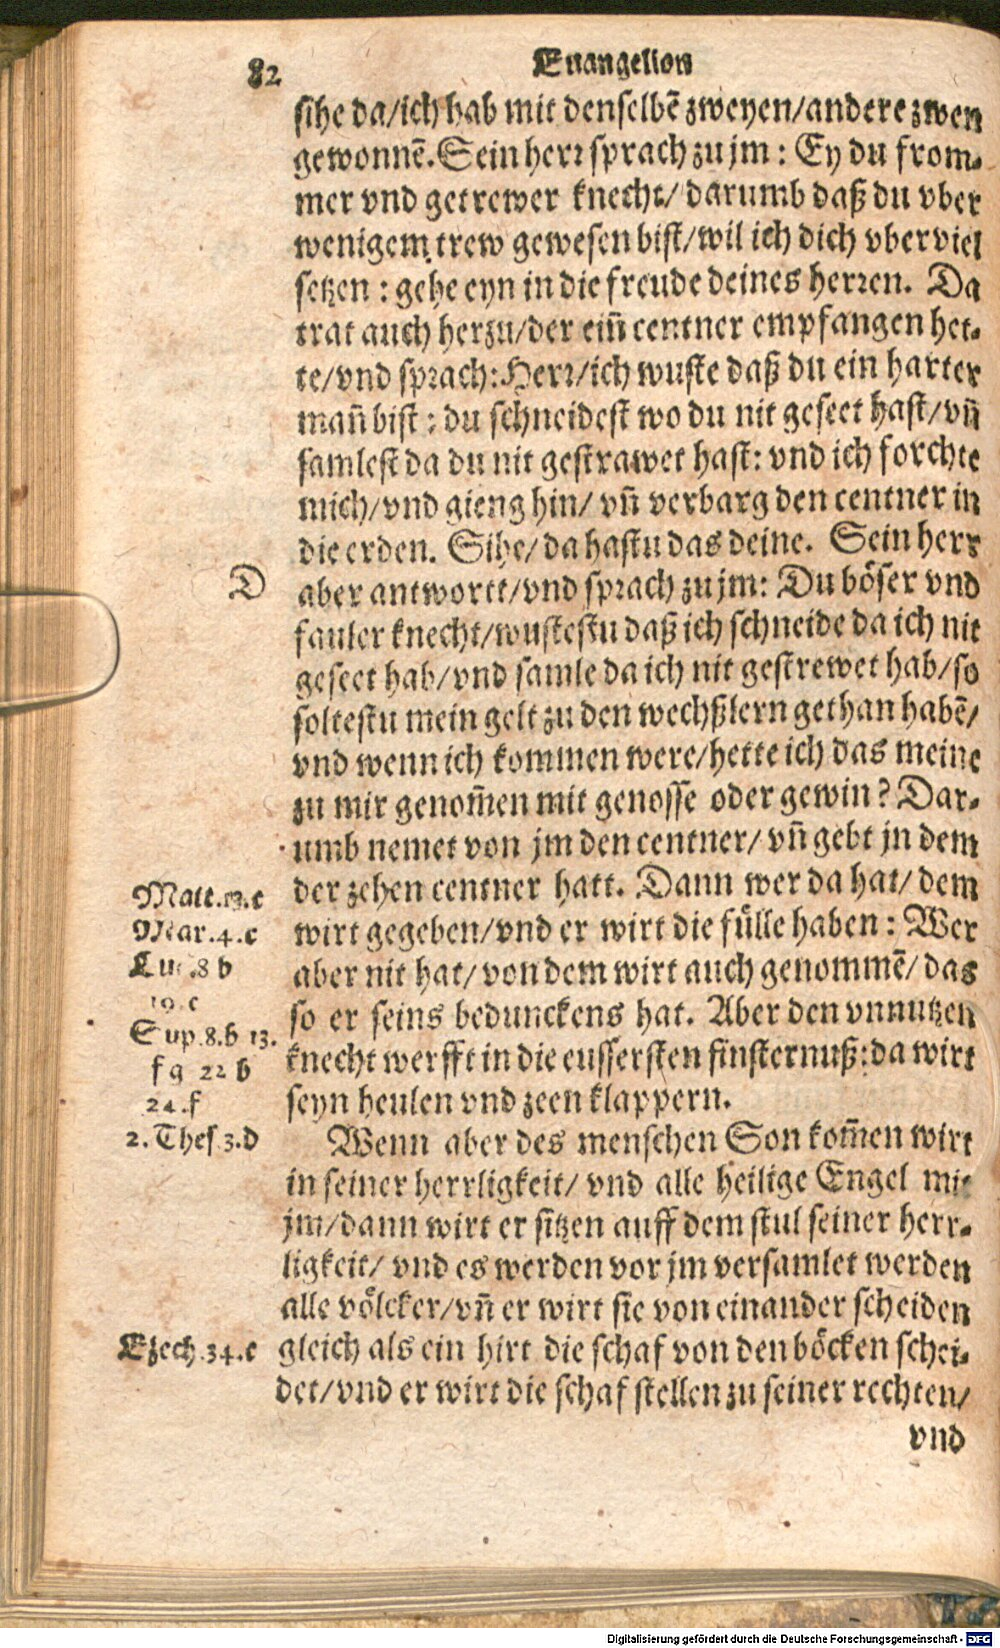 82
Euangelion
sihe da/ich hab mit denselbē zweyen/andere zwen
gewonnē. Sein herr sprach zu jm : Ey du from-
mer vnd getrewer knecht/ darumb daß du vber
wenigem trew gewesen bist/wil ich dich vber viel
setzen : gehe eyn in die freude deines herren. Da
trat auch herzu/der eiñ centner empfangen het-
te/vnd sprach: Herr/ich wuste daß du ein harter
mañ bist : du schneidest wo du nit geseet hast/vñ
samlest da du nit gestrawet hast: vnd ich forchte
mich/vnd gieng hin/ vñ verbarg den centner in
die erden. Sihe/ da hastu das deine. Sein herr
D
aber antwortt/vnd sprach zu jm: Du böser vnd
fauler knecht/wustestu daß ich schneide da ich nit
geseet hab/vnd samle da ich nit gestrewet hab/so
soltestu mein gelt zu den wechßlern gethan habē/
vnd wenn ich kommen were/hette ich das meine
zu mir genom̄en mit genosse oder gewin? Dar-
umb nemet von jm den centner/ vñ gebt jn dem
der zehen centner hatt. Dann wer da hat/ dem
wirt gegeben/vnd er wirt die fülle haben : Wer
aber nit hat/ von dem wirt auch genommē/ das
so er seins bedunckens hat. Aber den vnnutzen
knecht werfft in die eussersten finsternuß: da wirt
seyn heulen vnd zeen klappern.
Matt.13.c
Mar.4.c
Luc.8 b
19.c
Sup.8.b 13.
f g 22 b
24.f
2. Thes.3.d
Wenn aber des menschen Son kom̄en wirt
in seiner herrligkeit/ vnd alle heilige Engel mit
jm/dann wirt er sitzen auff dem stul seiner herr-
ligkeit/ vnd es werden vor jm versamlet werden
alle völcker/vñ er wirt sie von einander scheiden
Ezech.34.c
gleich als ein hirt die schaf von den böcken schei-
det/vnd er wirt die schaf stellen zu seiner rechten/
vnd
Digitalisierung gefördert durch die Deutsche Forschungsgemeinschaft - DFG